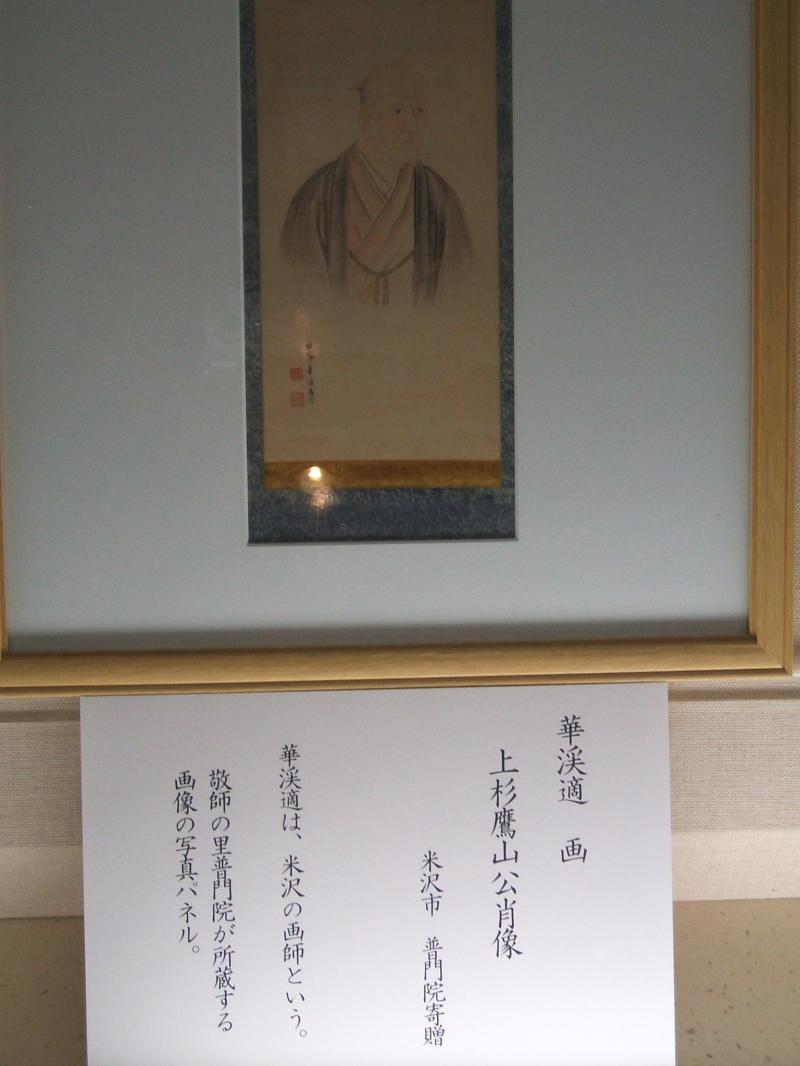 華渓適　画
上杉鷹山公肖像
米沢市　普門院寄贈
華渓適は、米沢の画師という。
敬師の里普門院が所蔵する
画像の写真パネル。